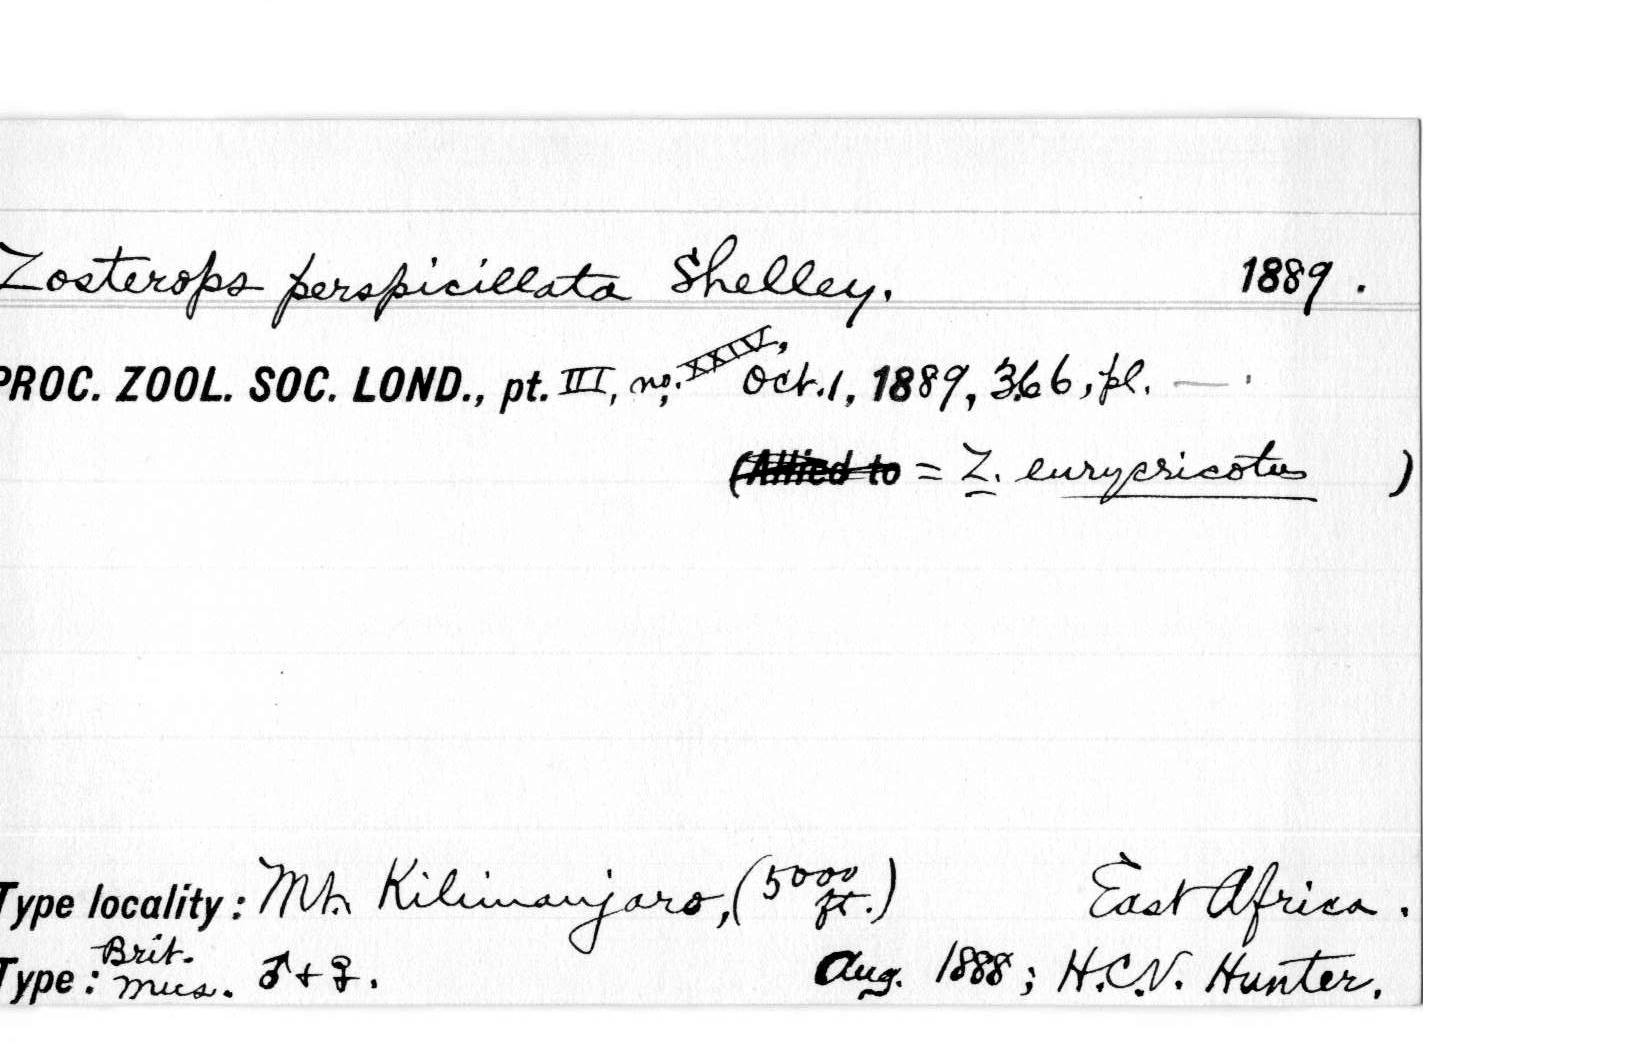 Zosterops perspicillata Shelley. 1889.
PROC. ZOOL. SOC. LOND., pt. III, no. XXIV, Oct. 1, 1889, 366, pl. — .
(Allied to = Z. eurycricotus )
Type locality: Mt. Kilimanjaro, (5000 ft.) East Africa.
Type: Brit. Mus. ♂ + ♀. Aug. 1888; H.C.V. Hunter.